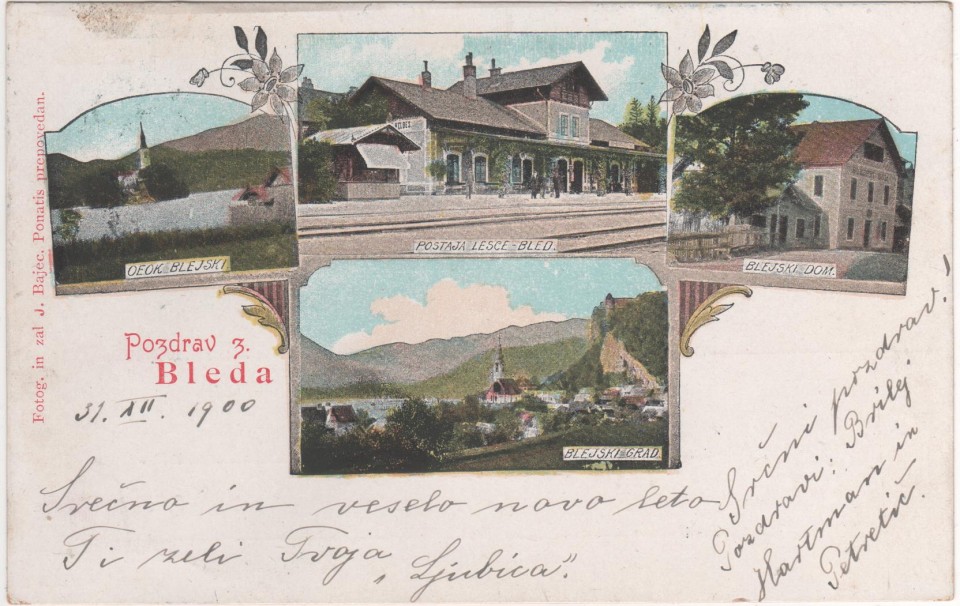 Fotog. in zal J. Bajec. Ponatis prepovedan.
VELDES
OEOK BLEJSKI
POSTAJA LESCE-BLED.
BLEJSKI DOM.
BLEJSKI GRAD
Pozdrav z.
Bleda
31. XII. 1900
Srečno in veselo novo leto
Ti zeli Tvoja
„Ljubica".
Srčni pozdrav!
Pozdravi: Brilej
Hartman in
Petretič.